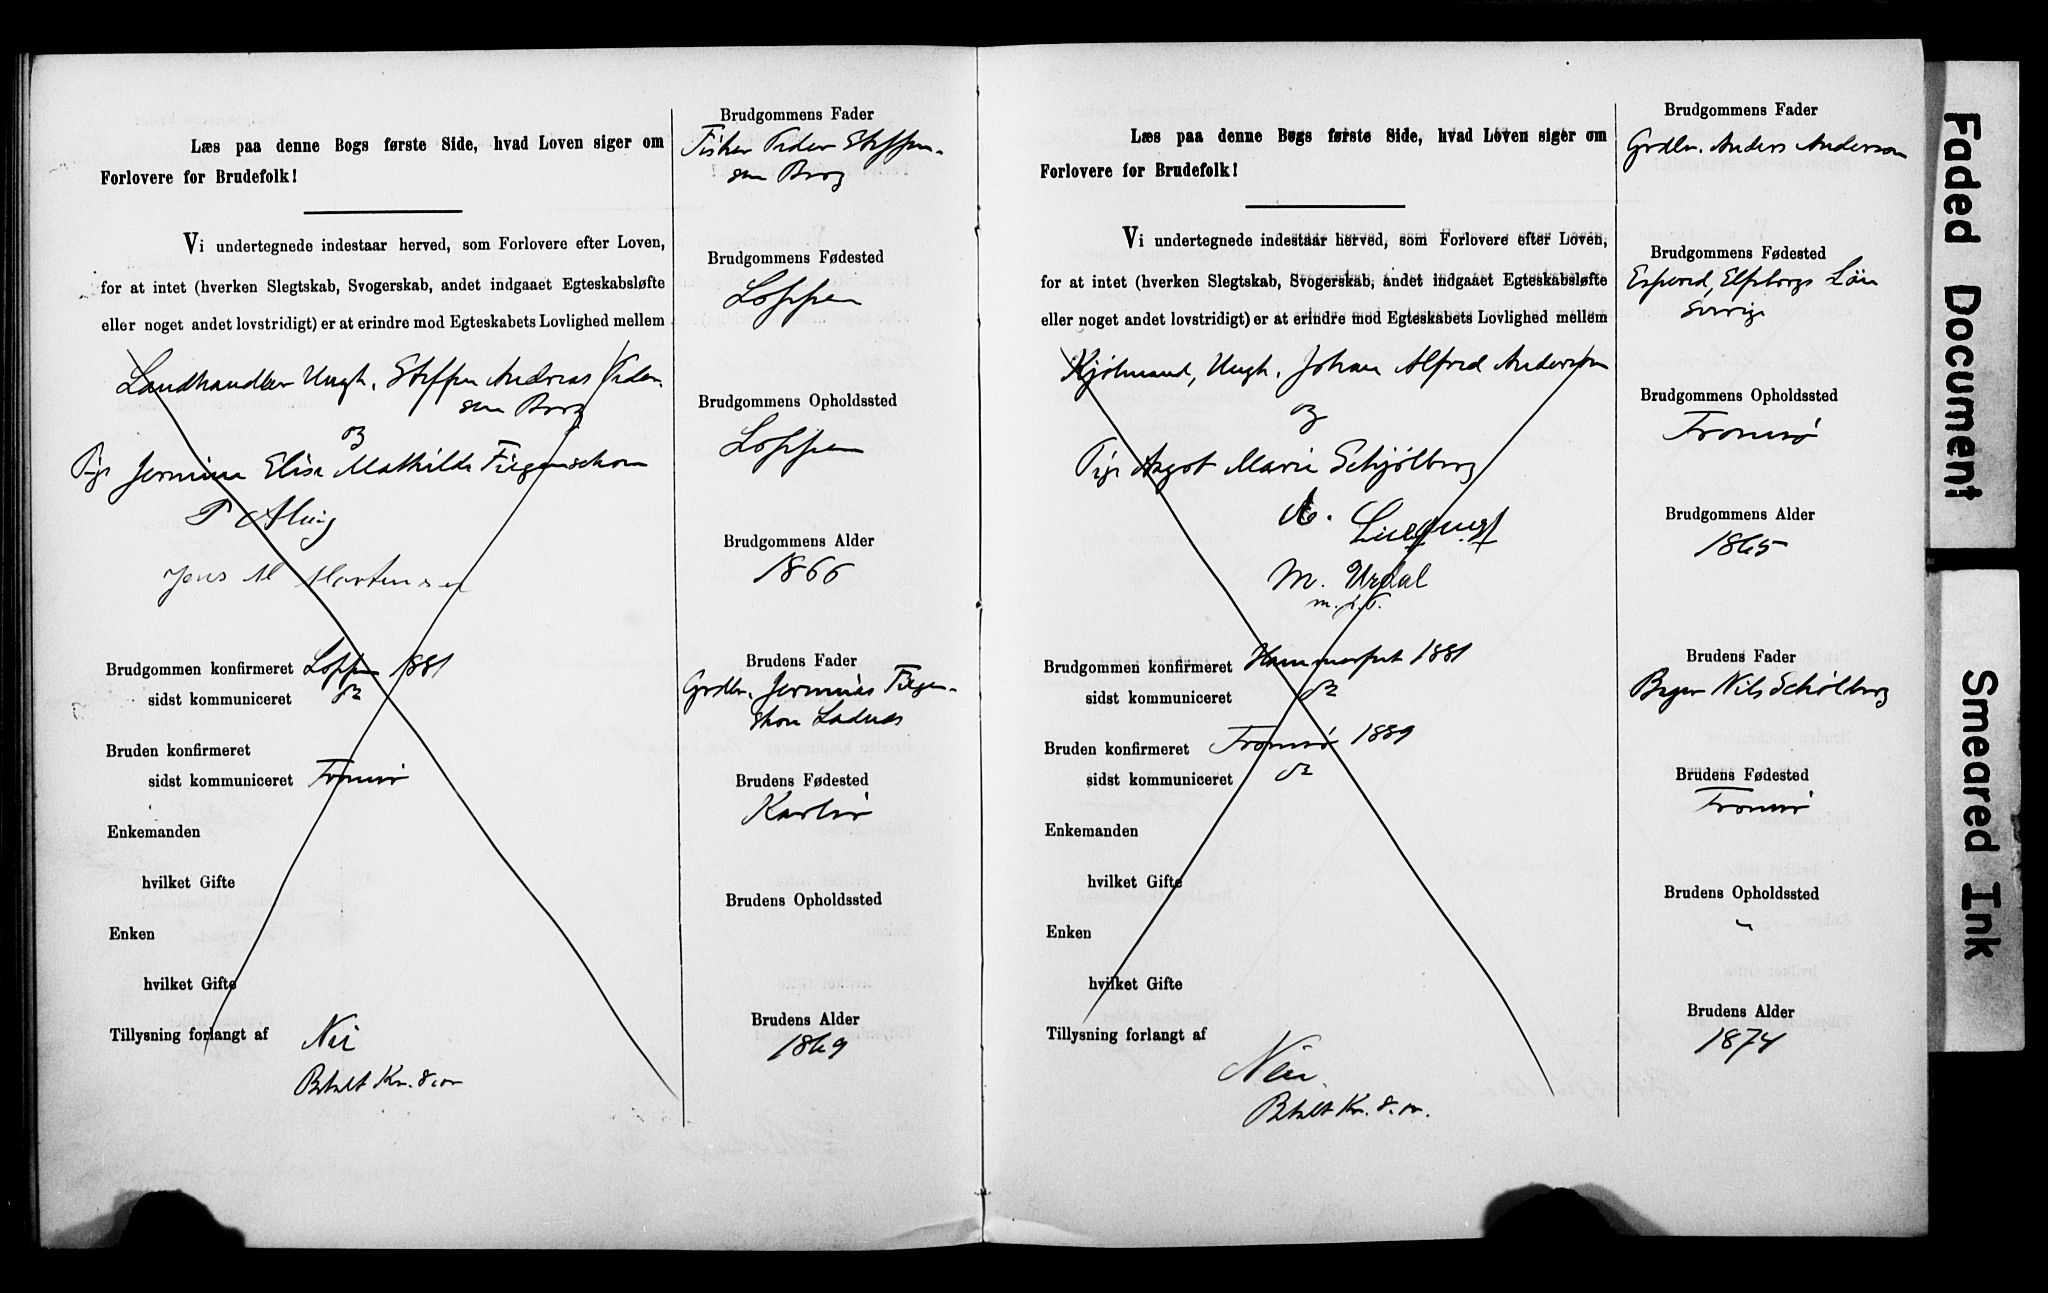 Læs paa denne Bogs første Side, hvad Loven siger om
Forlovere for Brudefolk!
Vi undertegnede indestaar herved, som Forlovere efter Loven,
for at intet (hverken Slegtskab, Svogerskab, andet indgaaet Egteskabsløfte
eller noget andet lovstridigt) er at erindre mod Egteskabets Lovlighed mellem
Landhandler Ungk. Steffen Andreas Peder-
sen Borg
og
Pige Jermine Elise Mathilde Figenschou
Jens M Mortensen
Brudgommen konfirmeret Loppen 1881
sidst kommuniceret do
Bruden konfirmeret
sidst kommuniceret Tromsø
Enkemanden
hvilket Gifte
Enken
hvilket Gifte
Tillysning forlangt af Nei
Betalt Kr. 8.00
Brudgommens Fader
Fisker Peder Steffen-
sen Borg
Brudgommens Fødested
Loppen
Brudgommens Opholdssted
Loppen
Brudgommens Alder
1866
Brudens Fader
Grdbr. Jermias Figen-
skou
Brudens Fødested
Karlsø
Brudens Opholdssted
Brudens Alder
1869
Læs paa denne Bogs første Side, hvad Loven siger om
Forlovere for Brudefolk!
Vi undertegnede indestaar herved, som Forlovere efter Loven,
for at intet (hverken Slegtskab, Svogerskab, andet indgaaet Egteskabsløfte
eller noget andet lovstridigt) er at erindre mod Egteskabets Lovlighed mellem
Kjøbmand, Ungk. Johan Alfred Anderson
og
Pige Aagot Marie Schjølberg
M. Urdal
Brudgommen konfirmeret Hammerfest 1881
sidst kommuniceret do
Bruden konfirmeret Tromsø 1889
sidst kommuniceret do
Enkemanden
hvilket Gifte
Enken
hvilket Gifte
Tillysning forlangt af
Nei.
Betalt Kr. 8.00.
Brudgommens Fader
Grdbr. Anders Anderson
Brudgommens Fødested
Espered, Elfsborgs Län
Sverige
Brudgommens Opholdssted
Tromsø
Brudgommens Alder
1865
Brudens Fader
Bager Nils Schølberg
Brudens Fødested
Tromsø
Brudens Opholdssted
"
Brudens Alder
1874
Faded Document
Smeared Ink